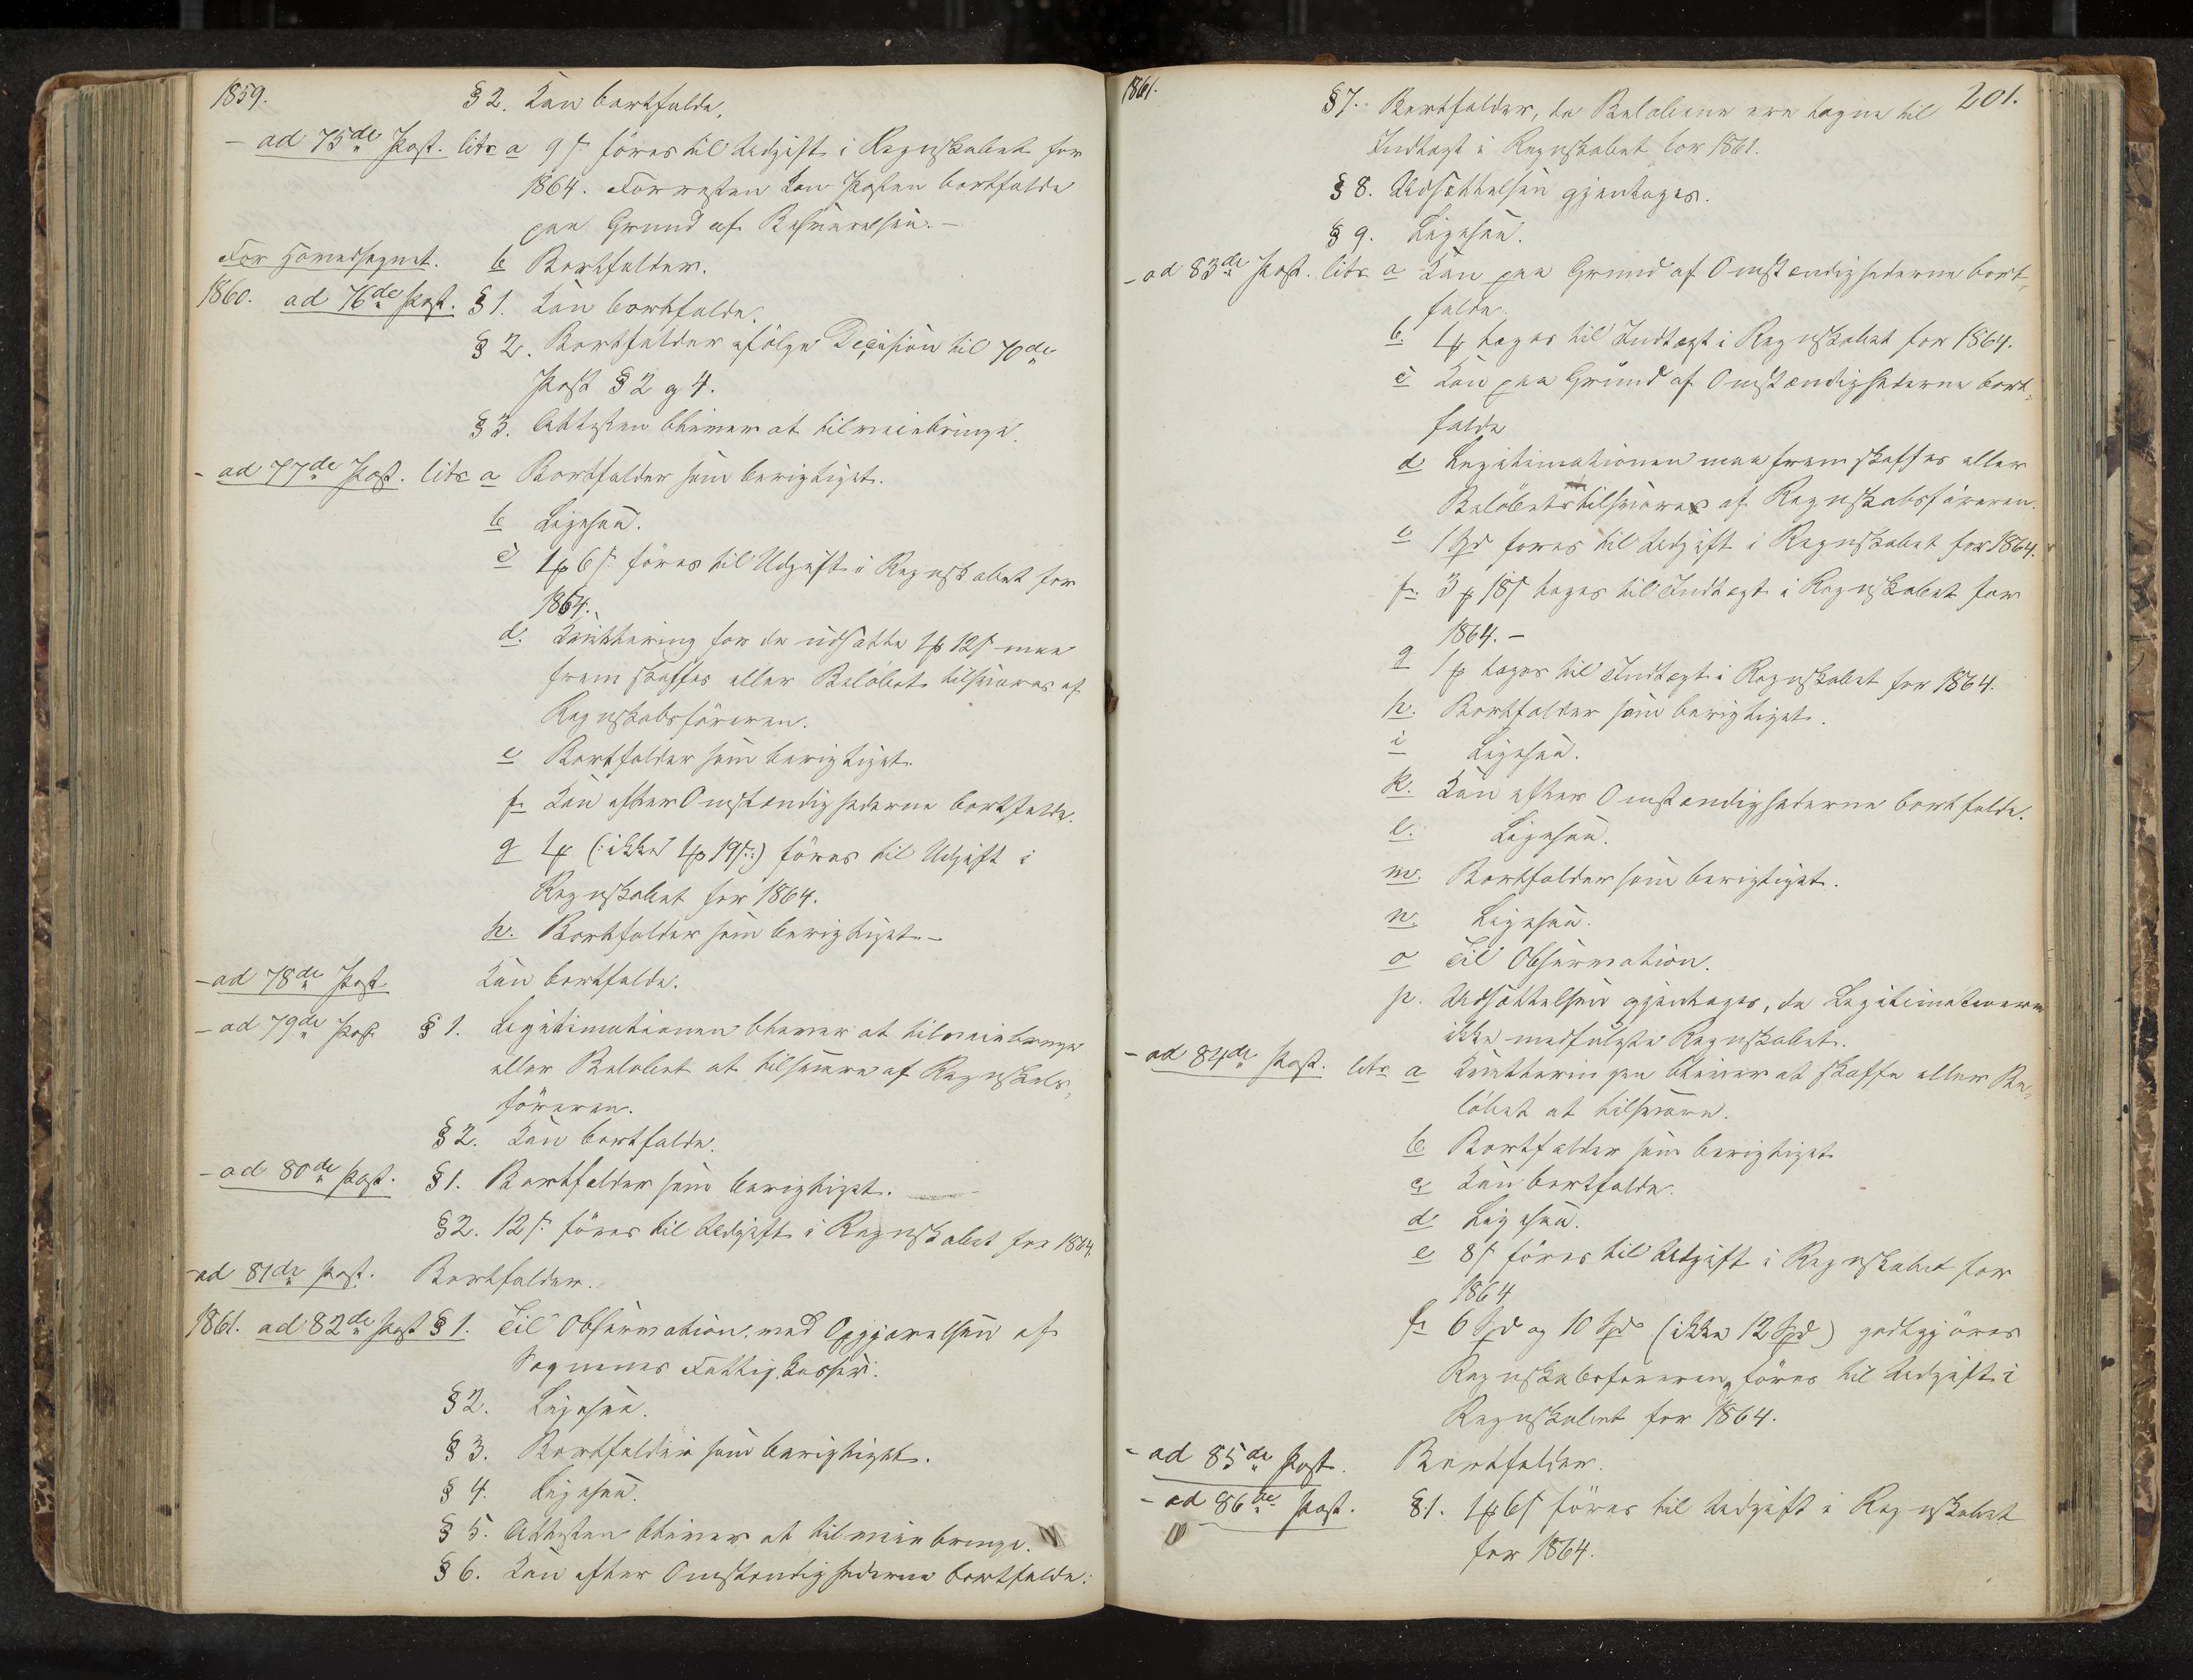 1859. §2. Kan bortfalde.
- ad 75de Post. litr a 9 s föres til Udgift i Regnskabet for
1864. Forresten kan Posten bortfalde
paa Grund af Besvarelsen. -
For Hovedsognet. b Bortfalder.
1860. ad 76de Post. §1. Kan bortfalde.
§ 2. Bortfalder ifölge Decision til 70de
Post § 2 og 4.
§ 3. Attesten bliver at tilveiebringe.
- ad 77de Post. litr a Bortfalder som berigtiget.
b Ligesaa.
c 1 # 6 s föres til Udgift i Regnskabet for
1864.
d. Qvittering for de udsatte 1 # 12 s maa
fremskaffes eller Belöbet tilsvares af
Regnskabsföreren.
e Bortfalder som berigtiget.
f. Kan efter Omstændighederne bortfalde.
g 4 # (: ikke 4 # 19 s :) föres til Udgift i
Regnskabet for 1864.
h. Bortfalder som berigtiget. -
- ad 78de Post Kan bortfalde.
- ad 79de Post § 1. Legitimationen bliver at tilveiebringe
eller Belobet at tilsvare af Regnskabs-
föreren.
§ 2. Kan bortfalde.
- ad 80de Post. §1. Bortfalder som berigtiget.
§2. 12 s. föres til Udgift i Regnskabet for 1864.
- ad 81de Post. Bortfalder.
1861. ad 82de Post § 1. Til Observation med Opgjörelsen af
Sognenes Fattigkasser.
§ 2. Ligesaa.
§ 3. Bortfalder som berigtiget.
§ 4. Ligesaa.
§ 5. Attesten bliver at tilveiebringe.
§ 6. Kan efter Omstændighederne bortfalde.
1861. 201.
§7. Bortfalder, da Belobene ere tagne til
Indtægt i Regnskabet for 1861.
§ 8. Udsættelsen gjentages.
§ 9. Ligesaa.
- ad 83de Post. litr a Kan paa Grund af Omstændighederne bort-
falde.
b. 4 # tages til Indtægt i Regnskabet for 1864.
c Kan paa Grund af Omstændighederne bort-
falde
d Legitimationen maa fremskaffes eller
Belöbet tilsvares af Regnskabsföreren.
e 1 Spd föres til Udgift i Regnskabet for 1864.
f. 3 # 18 s tages til Indtægt i Regnskabet for
1864. -
g 1 # tages til Indtægt i Regnskabet for 1864.
h. Bortfalder som berigtiget.
i Ligesaa.
k. Kan efter Omstændighederne bortfalde.
l. Ligesaa.
m. Bortfalder som berigtiget.
n. Ligesaa.
o Til Observation.
p. Udsættelsen gjentages, da Legitimationerne
ikke medfulgte Regnskabet.
- ad 84de Post. litr a Qvitteringen bliver at skaffe eller Be-
löbet at tilsvare.
b Bortfalder som berigtiget
c Kan bortfalde.
d Ligesaa.
e 8 s föres til Udgift i Regnskabet for
1864
f. 6 Spd og 10 Spd (ikke 12 Spd) godtgjöres
Regnskabsföreren, föres til Udgift i
Regnskabet for 1864.
- ad 85de Post. Bortfalder.
- ad 86de Post. §1. 1 # 6 s föres til Udgift i Regnskabet
for 1864.